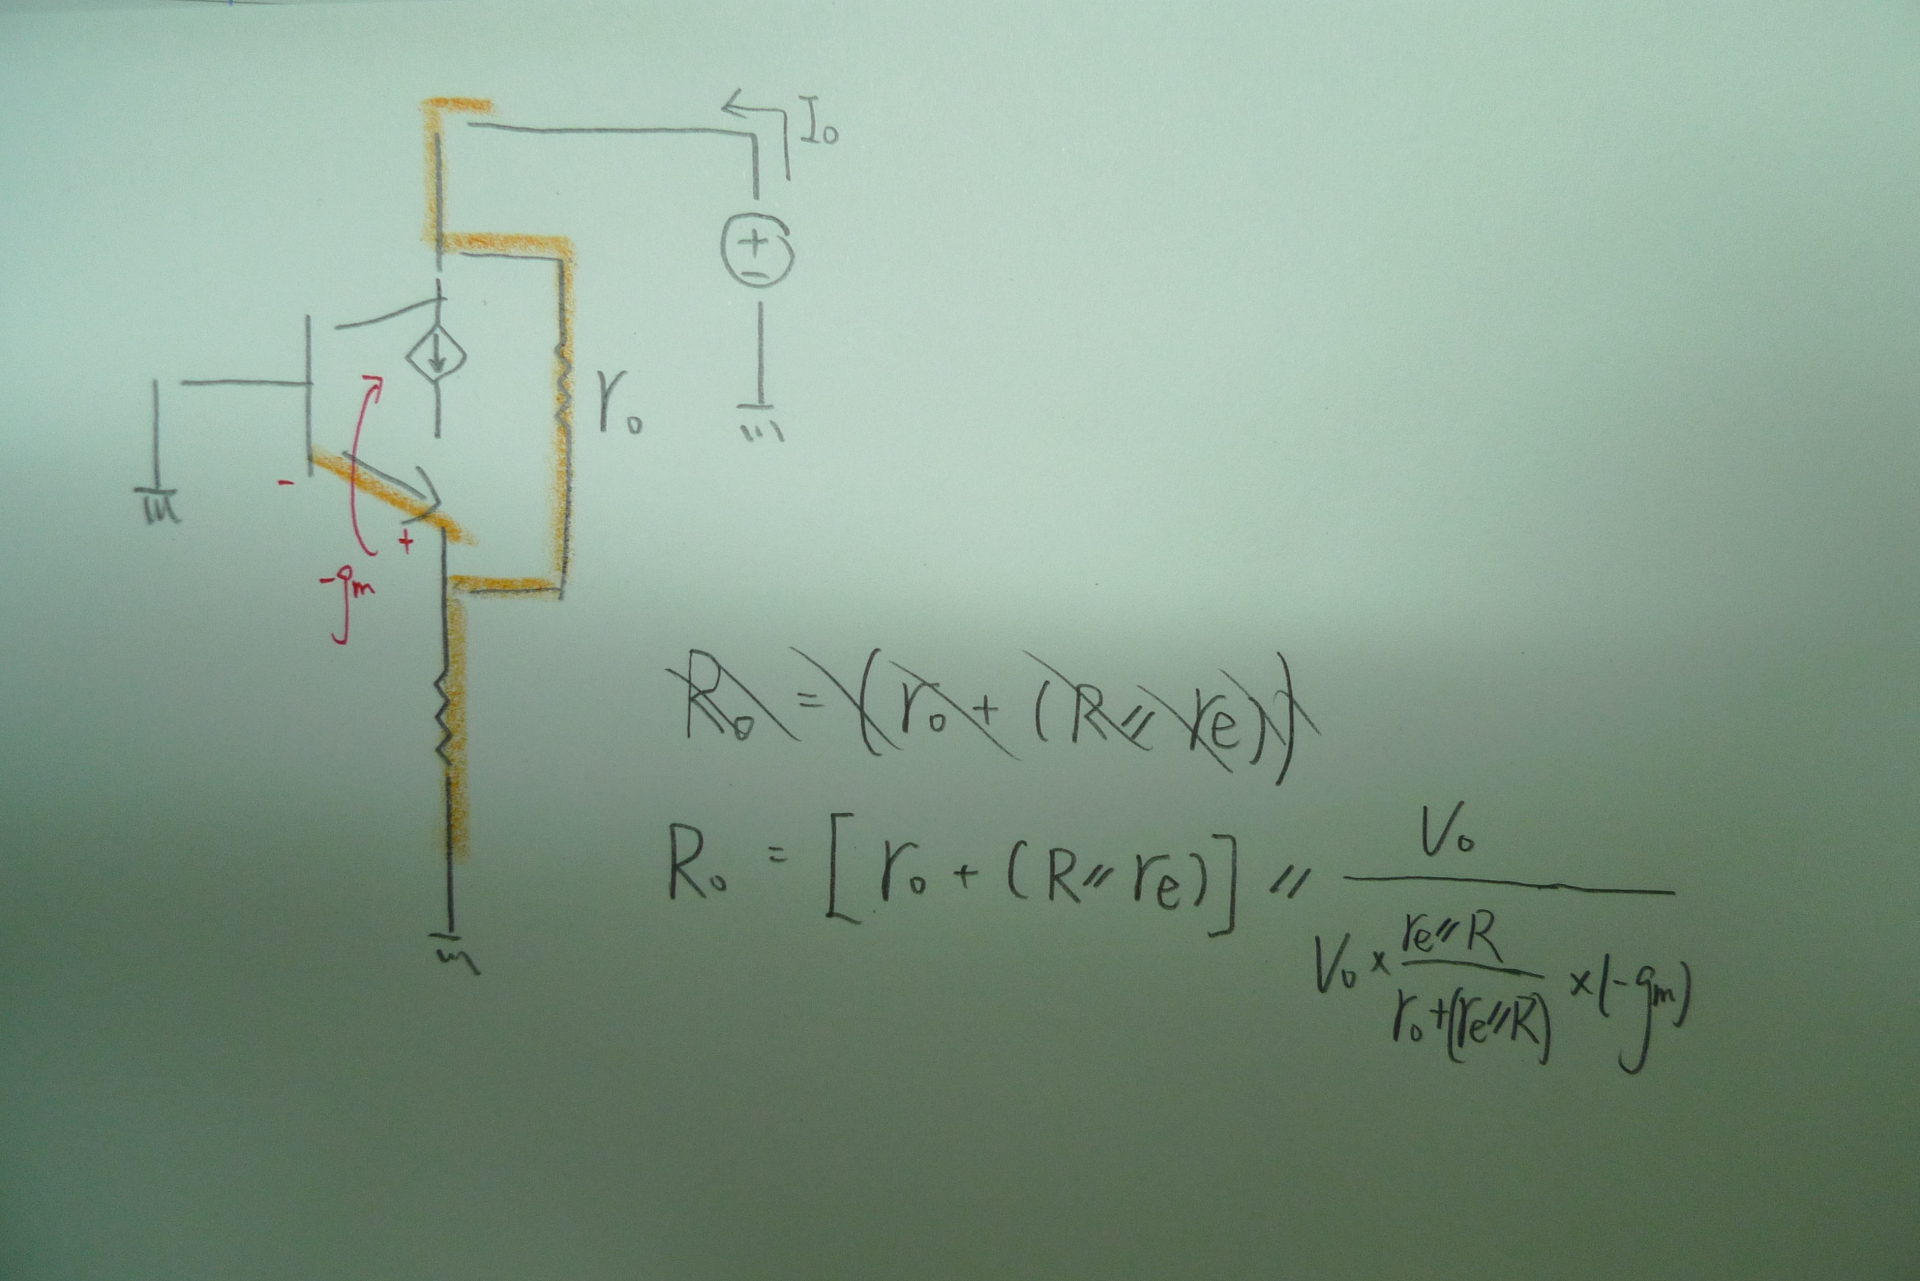 I₀
+
-
r₀
-
+
-gm
R₀ = (r₀ + (R // re))
R₀ = [r₀ + (R // re)] // V₀ / (V₀ × (re // R) / (r₀ + (re // R)) × (-gm))